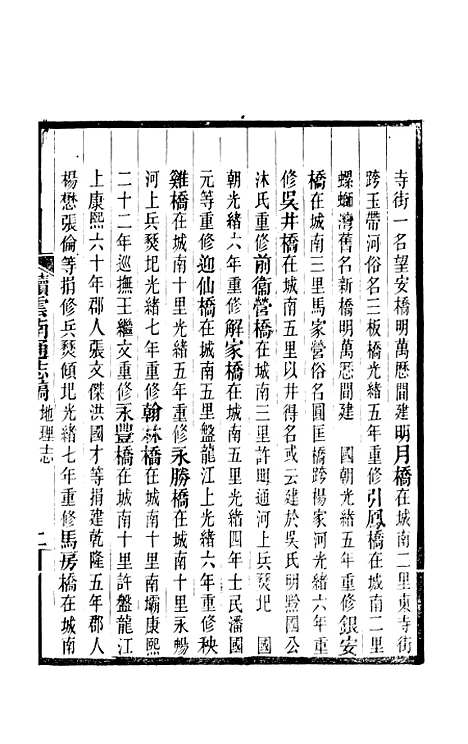 寺街一名望安橋明萬歷間建明月橋在城南二里東寺街
跨玉帶河俗名三板橋光緒五年重修引鳳橋在城南二里
螺螄灣舊名新橋明萬歷間建　國朝光緒五年重修銀安
橋在城南三里馬家營俗名圓匡橋跨楊家河光緒六年重
修吳井橋在城南五里以井得名或云建於吳氏明黔國公
沐氏重修前衞營橋在城南三里許明通河上兵燹圮　國
朝光緒六年重修解家橋在城南五里光緒四年士民潘國
元等重修迎仙橋在城南五里盤龍江上光緒六年重修秧
雞橋在城南十里光緒五年重修永勝橋在城南十里永暢
河上兵燹圮光緒七年重修翰林橋在城南十里南壩康熙
二十二年巡撫王繼文重修永豐橋在城南十里許盤龍江
上康熙六十年郡人張文傑洪國才等捐建乾隆五年郡人
楊懋張倫等捐修兵燹傾圮光緒七年重修馬房橋在城南
續雲南通志稿　地理志　二